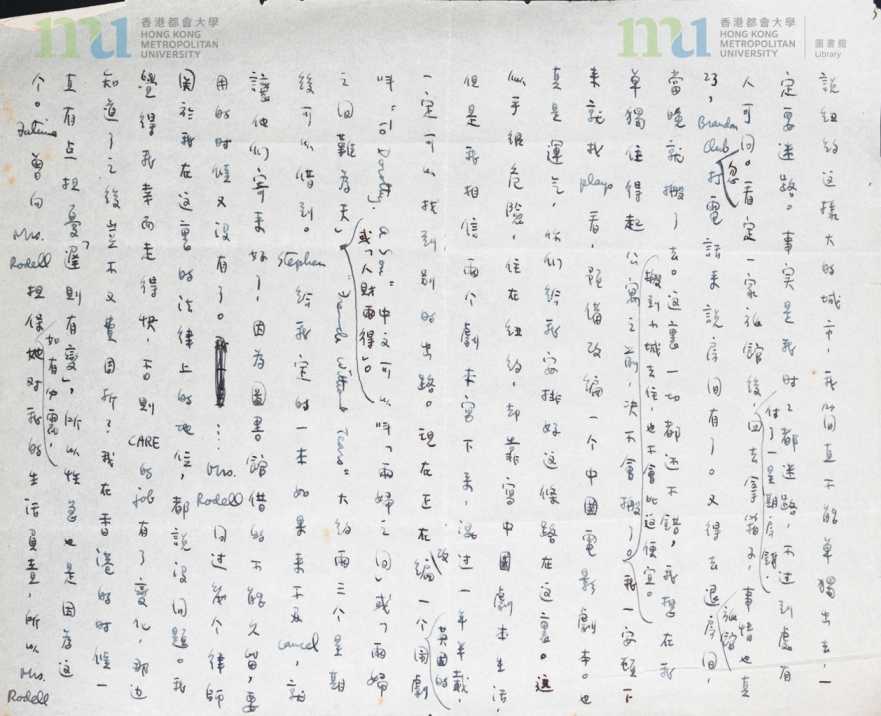 香港都會大學
HONG KONG
METROPOLITAN
UNIVERSITY
香港都會大學
HONG KONG
METROPOLITAN
UNIVERSITY
圖書館
Library
說紐約這樣大的城市,我簡直不能單獨出去,一
定要迷路。事实是我时々都迷路,不过到處有
人可问。看定一家旅館後,付了一星期房錢,回去拿箱子,事情也真
巧,Brandon Club忽打電話來說房间有了。又得去旅館退房间,
當晚就搬了去。這裏一切都还不錯,我想在我
單獨住得起公寓之前,決不會搬了。搬到小城去住,也不會比這便宜。我一安頓下
來就找plays看,預備改編一个中國電影劇本。也
真是運气,你们給我安排好這條路在這裏。這
似乎很危險,住在紐約,却靠寫中國劇本生活,
但是我相信兩个劇本寫下来,混过一年半載,
一定可以找到别的出路。現在正在改編一个英國的闹劇
叫: 中文可以叫「兩婦之间」或「兩婦
之间難為夫」或「人財兩得」。 大約兩三个星期
後可以借到。Stephen給我定的一本如果来不及cancel,就
讓他们寄来好了,因為圖書館借的不能久留,要
用的时候又没有了。…Mrs. Rodell问过幾个律師
関於我在這裏的法律上的地位,都說没问題。我
覺得我幸而走得快,否則CARE的job有了變化,那边
知道了之後豈不又費周折?我在香港的时候一
直有点担憂「遲則有變」,所以性急也是因為這
个。 曾向Mrs. Rodell担保如有必需,她对我的生活負責,所以Mrs. Rodell